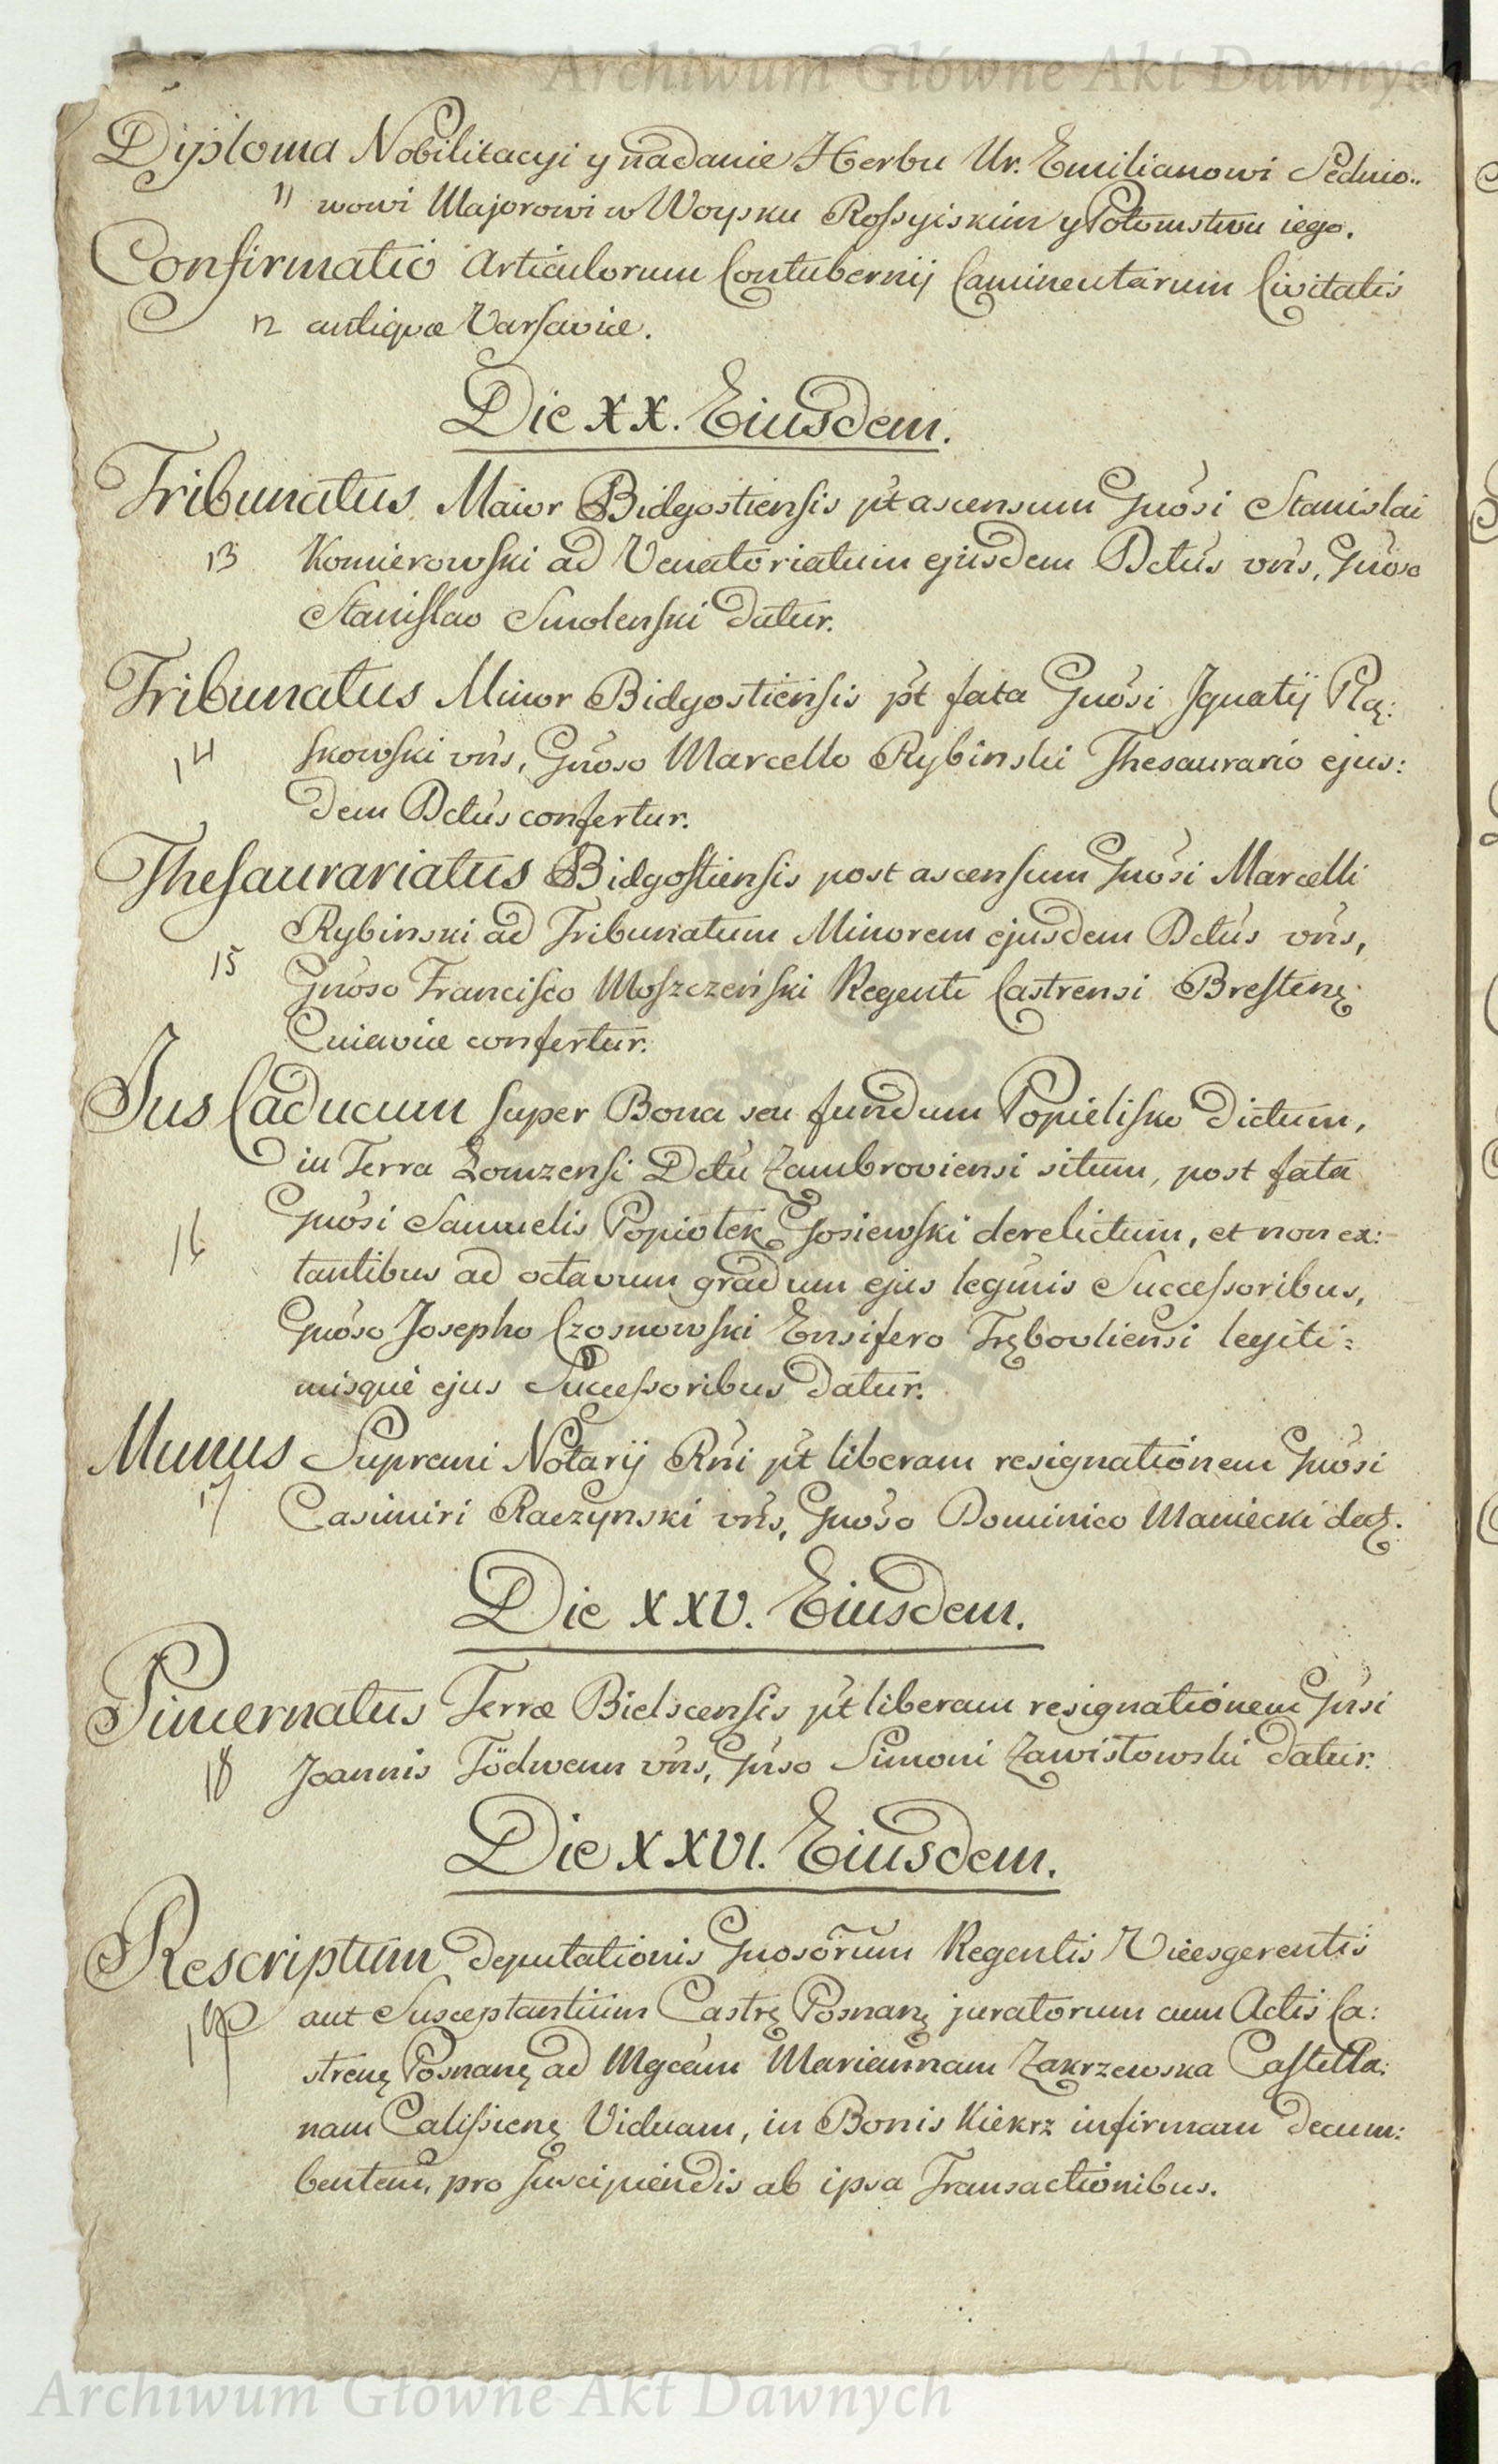 Archiwum Główne Akt Dawnych
Dyploma Nobilitacyi y nadanie Herbu Ur. Emilianowi Sednio..
11 wowi Majorowi w Woysku Rossyiskim y Potomstwu iego.
Confirmatio Articulorum Contubernij Caminentarum Civitatis
12 antiquæ Varsaviæ.
Die XX. Eiusdem.
Tribunatus Maior Bidgostiensis pt ascensum Gnosi Stanislai
13 Komierowski ad Venatoriatum ejusdem Dctus vns, Gnoso
Stanislao Smolenski datur.
Tribunatus Minor Bidgostiensis pt fata Gnosi Ignatij Plą:
14 skowski vns, Gnoso Marcello Rybinski Thesaurario ejus:
dem Dctus confertur.
Thesaurariatus Bidgostiensis post ascensum Gnosi Marcelli
Rybinski ad Tribunatum Minorem ejusdem Dctus vns,
15 Gnoso Francisco Moszczeński Regenti Castrensi Brestenę
Cuiaviæ confertur.
Jus Caducum super Bona seu fundum Popielisko dictum,
in Terra Lomzensi Dctu Zambroviensi situm, post fata
16 Gnosi Samuelis Popiołek Gosiewski derelictum, et non ex:
tantibus ad octavum gradum ejus legmis Successoribus,
Gnoso Josepho Czosnowski Ensifero Trębovliensi legiti:
misque ejus Successoribus datur.
Munus Supremi Notarij Rni pt liberam resignationem Gnosi
17 Casimiri Raczynski vns, Gnoso Dominico Maniecki
Die XXV. Eiusdem.
Pincernatus Terræ Bielscensis pt liberam resignationem Gnsi
18 Joannis Tödwenn vns, Gnso Simoni Zawistowski datur.
Die XXVI. Eiusdem.
Rescriptum deputationis Gnosorum Regentis Vicesgerentis
19 aut Susceptantium Castrę Posnanę juratorum cum Actis Ca:
strenę Posnanę ad Mgcam Mariannam Zakrzewska Castella:
nam Calissienę Viduam, in Bonis Kiekrz infirmam decum:
bentem, pro suscipiendis ab ipsa Transactionibus.
Archiwum Główne Akt Dawnych